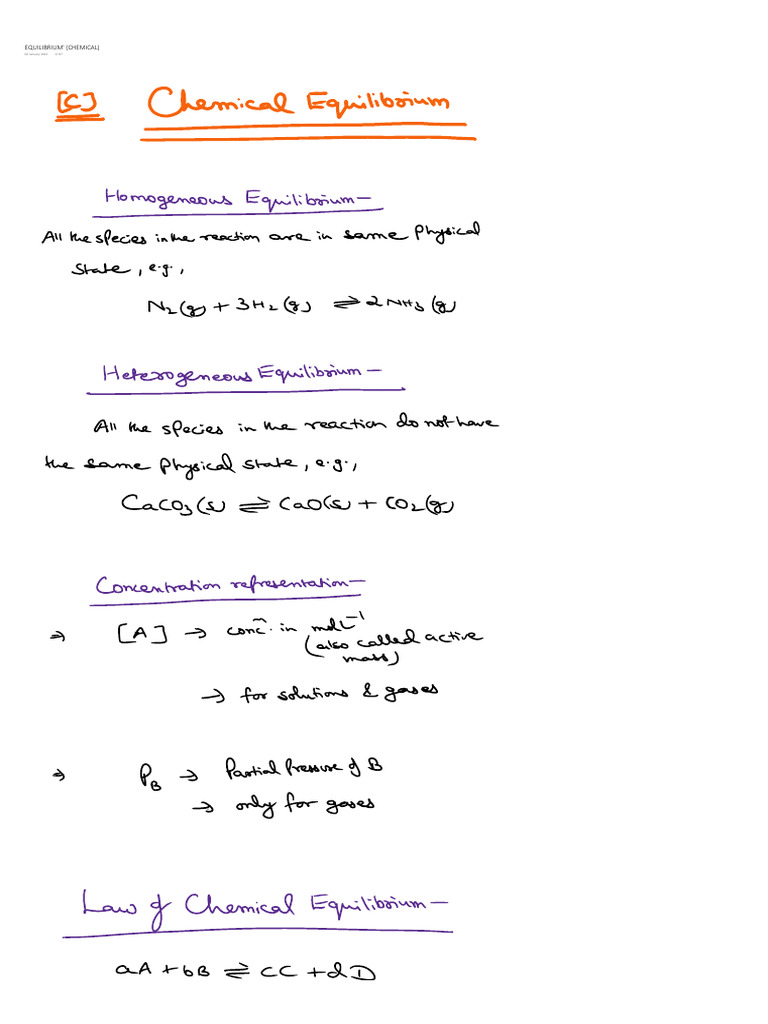 EQUILIBRIUM' (CHEMICAL)
[C] Chemical Equilibrium
Homogeneous Equilibrium—
All the species in the reaction are in same Physical
State, e.g.,
N₂(g) + 3H₂(g) ⇌ 2NH₃(g)
Heterogeneous Equilibrium—
All the species in the reaction do not have
the same physical state, e.g.,
CaCO₃(s) ⇌ CaO(s) + CO₂(g)
Concentration representation—
⇒ [A] → conc̃. in mol L⁻¹
(also called active
mass)
→ for solutions & gases
⇒ P_B → Partial Pressure of B
→ only for gases
Law of Chemical Equilibrium—
aA + bB ⇌ cC + dD